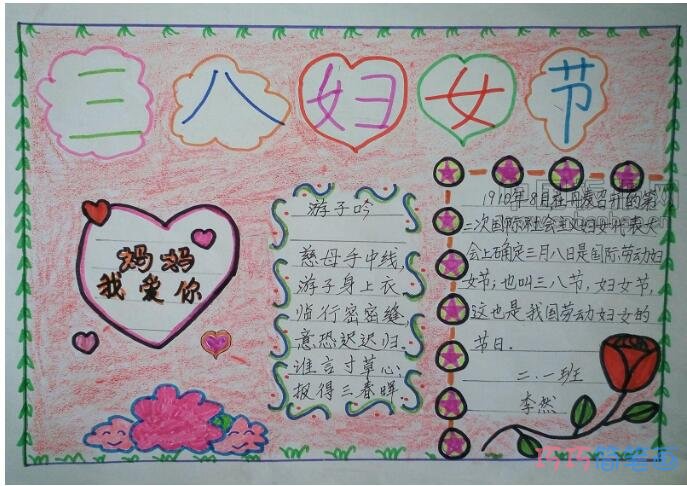 三八妇女节
妈妈
我爱你
游子吟
慈母手中线,
游子身上衣
临行密密缝,
意恐迟迟归.
谁言寸草心,
报得三春晖.
1910年8月在丹麦召开的第
二次国际社会主义妇女代表大
会上确定三月八日是国际劳动妇
女节;也叫三八节,妇女节,
这也是我国劳动妇女的
节日.
二.一班
李然
巧巧简笔画